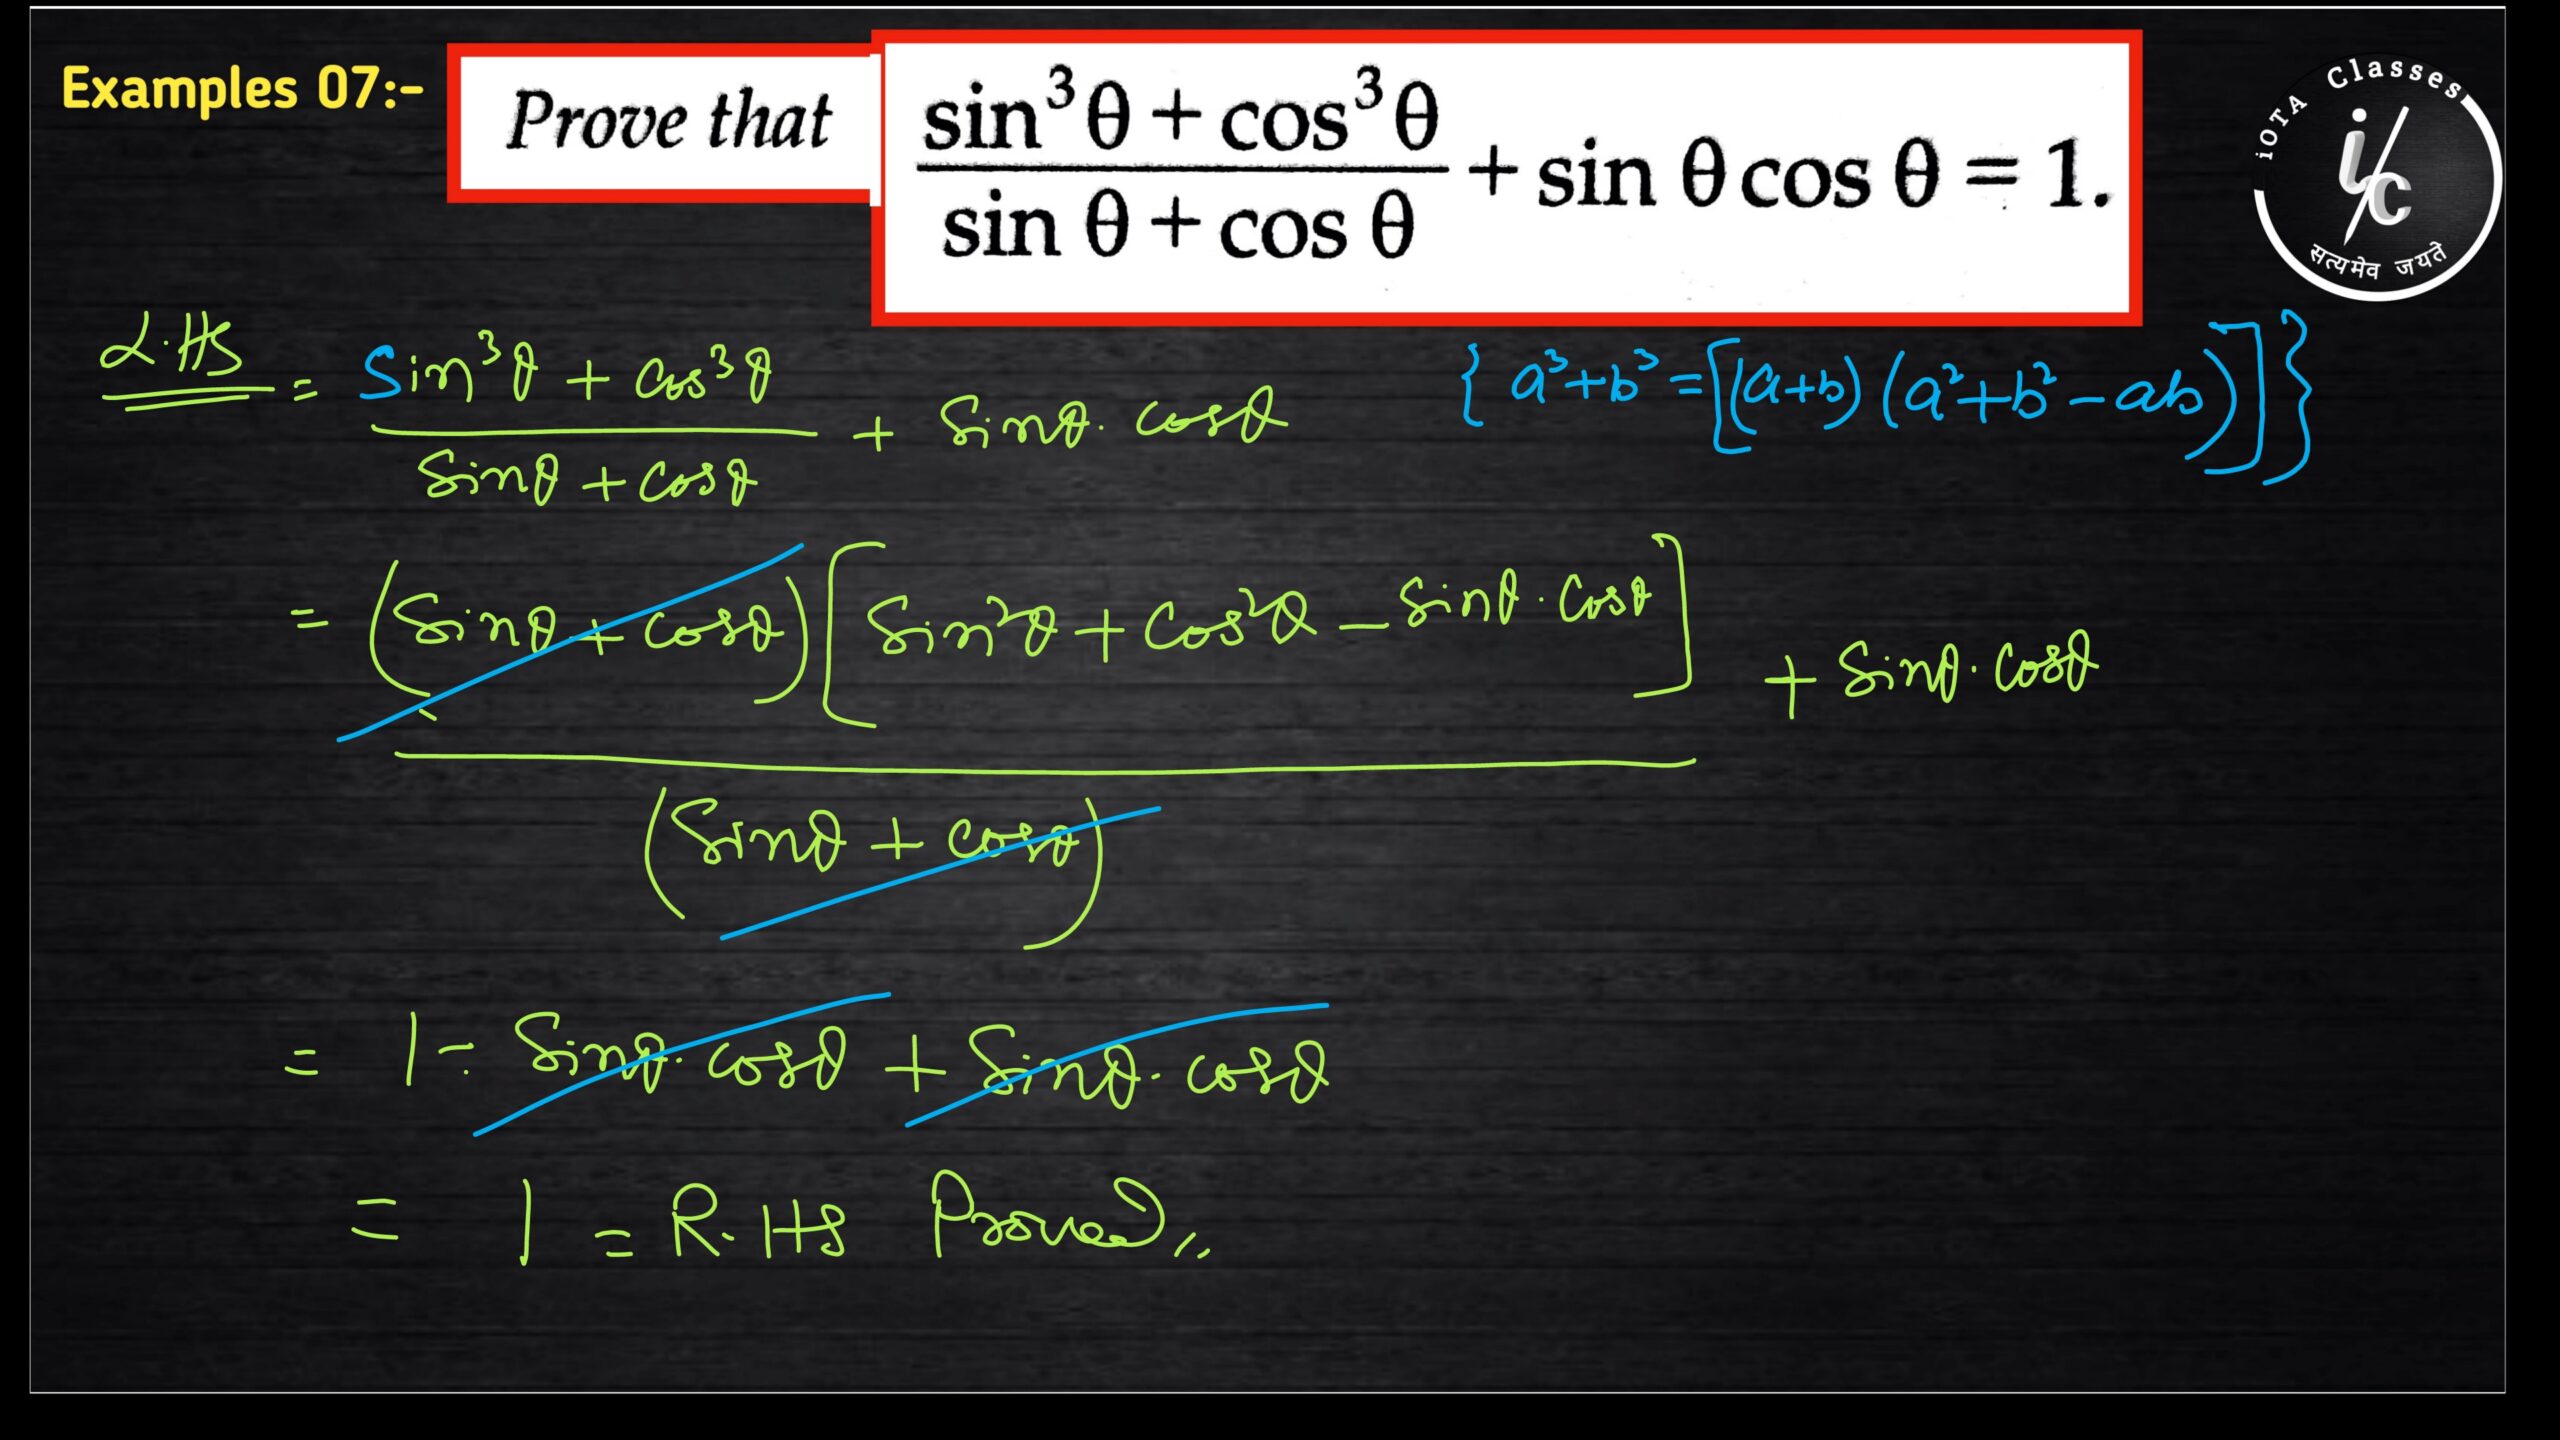 Examples 07:-
Prove that
sin³θ + cos³θ
sin θ + cos θ
+ sin θ cos θ = 1.
iOTA Classes
i/c
सत्यमेव जयते
L.HS = Sin³θ + Cos³θ
Sinθ + Cosθ
+ Sinθ. Cosθ
{ a³+b³ = [(a+b) (a²+b²-ab)] }
= (Sinθ + Cosθ) [Sin²θ + Cos²θ - Sinθ. Cosθ]
+ Sinθ. Cosθ
(Sinθ + Cosθ)
= 1 - Sinθ. Cosθ + Sinθ. Cosθ
= 1 = R.HS Proved,,